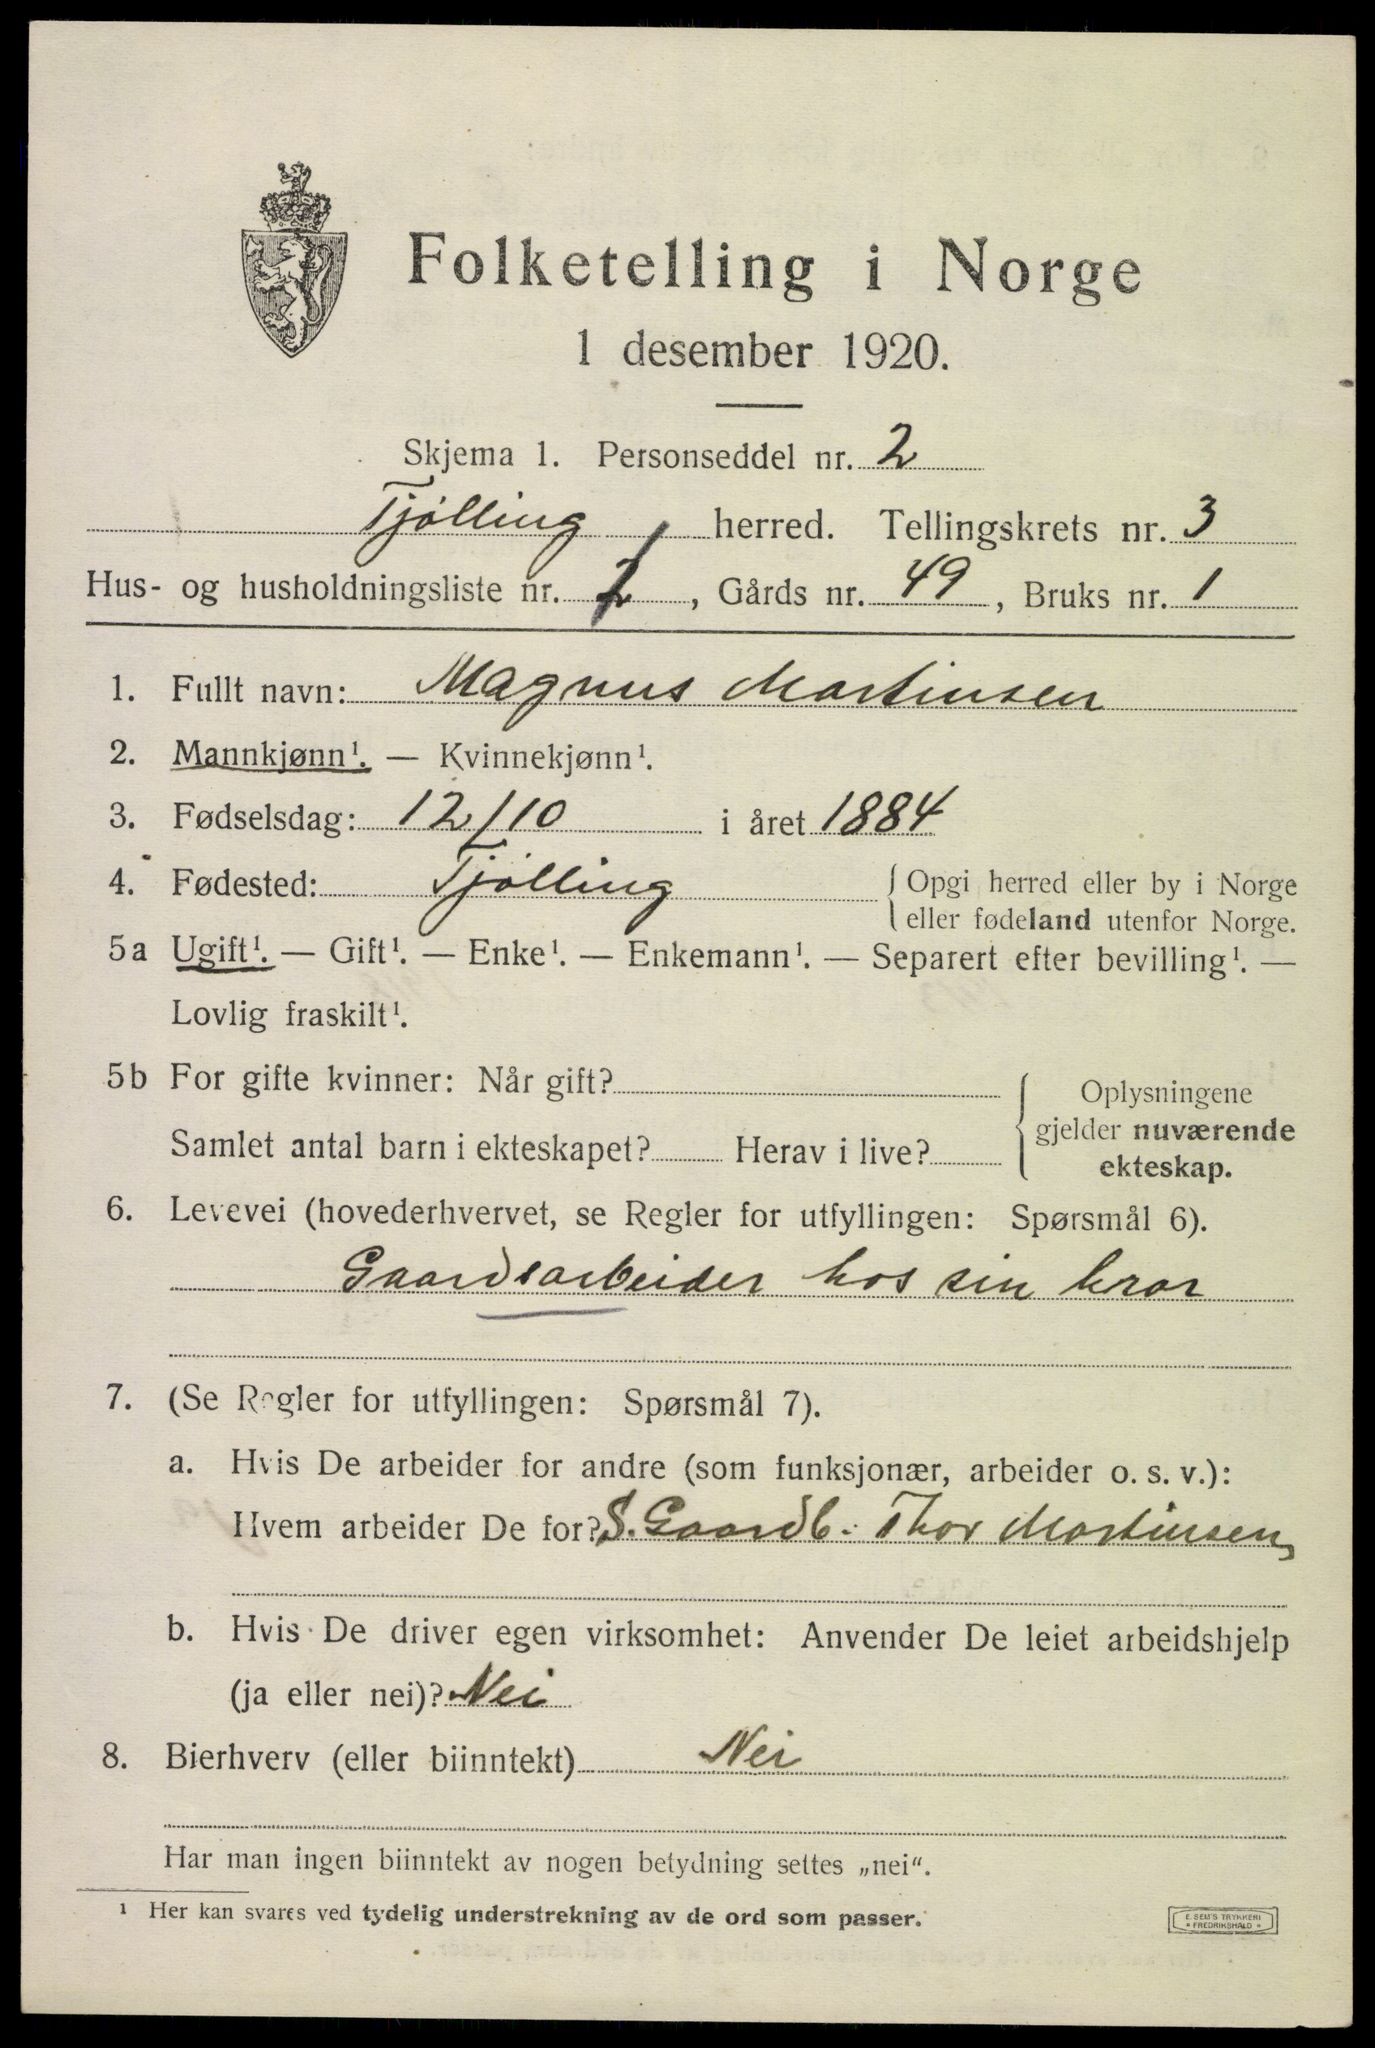 Folketelling i Norge
1 desember 1920.
Skjema 1. Personseddel nr. 2
Tjølling herred. Tellingskrets nr. 3
Hus- og husholdningsliste nr. 1, Gårds nr. 49, Bruks nr. 1
1. Fullt navn: Magnus Martinsen
2. Mannkjønn¹. — Kvinnekjønn¹.
3. Fødselsdag: 12/10 i året 1884
4. Fødested: Tjølling {Opgi herred eller by i Norge
eller fødeland utenfor Norge.
5a Ugift¹. — Gift¹. — Enke¹. — Enkemann¹. — Separert efter bevilling¹. —
Lovlig fraskilt¹.
5b For gifte kvinner: Når gift?
Samlet antal barn i ekteskapet? Herav i live?
{Oplysningene
gjelder nuværende
ekteskap.
6. Levevei (hovederhvervet, se Regler for utfyllingen: Spørsmål 6).
Gaardsarbeider hos sin bror
7. (Se Regler for utfyllingen: Spørsmål 7).
a. Hvis De arbeider for andre (som funksjonær, arbeider o. s. v.):
Hvem arbeider De for? S. Gaardb. Thor Martinsen,
b. Hvis De driver egen virksomhet: Anvender De leiet arbeidshjelp
(ja eller nei)? Nei
8. Bierhverv (eller biinntekt) Nei
Har man ingen biinntekt av nogen betydning settes „nei“.
¹ Her kan svares ved tydelig understrekning av de ord som passer.
E. SEM'S TRYKKERI
* FREDRIKSHALD *